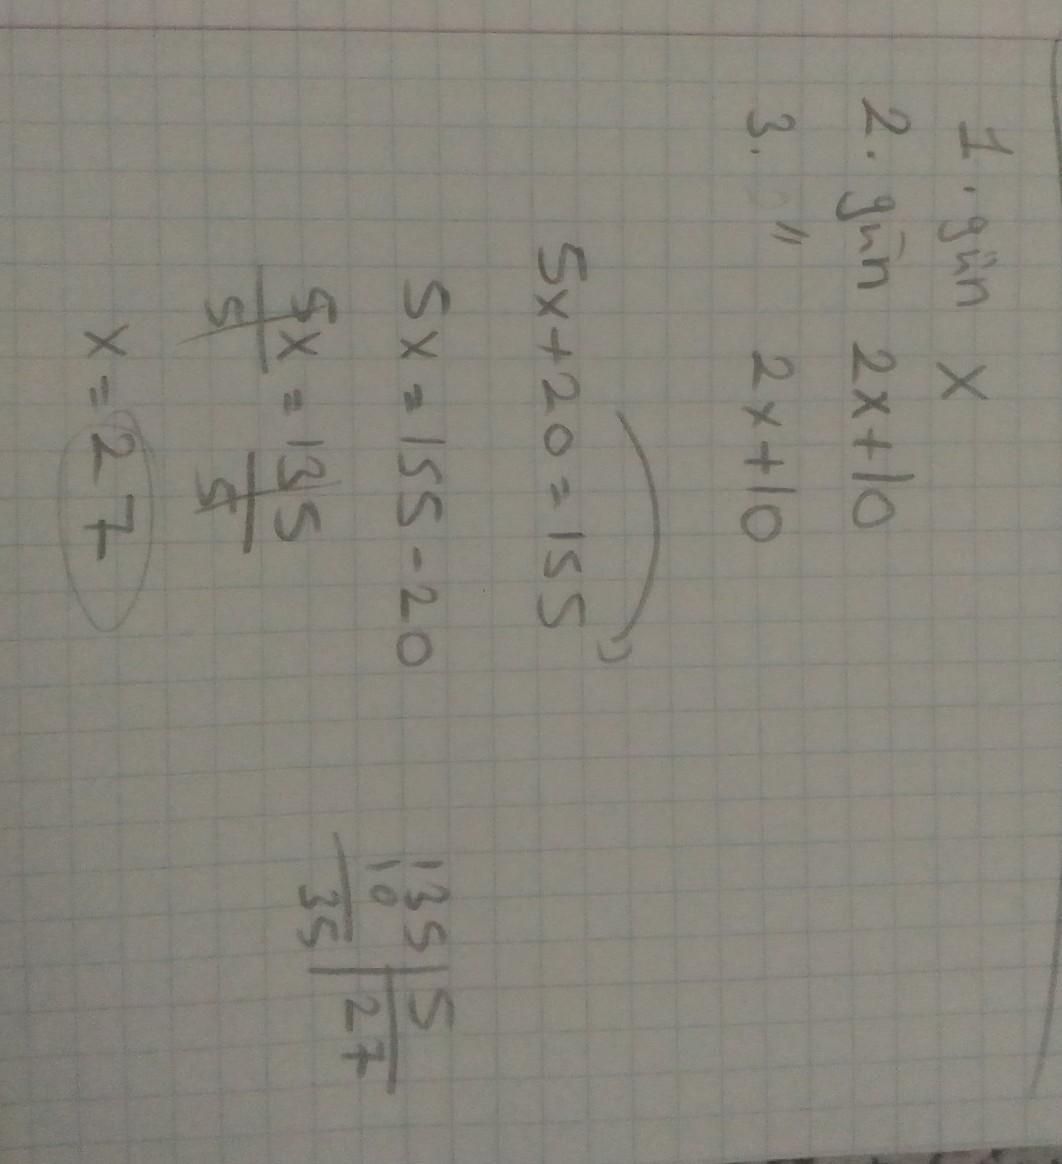 1. gün x
2. gün 2x+10
3. " 2x+10
5x+20=155
5x=155-20
5x/5=135/5
x=27
135|5
10 27
35